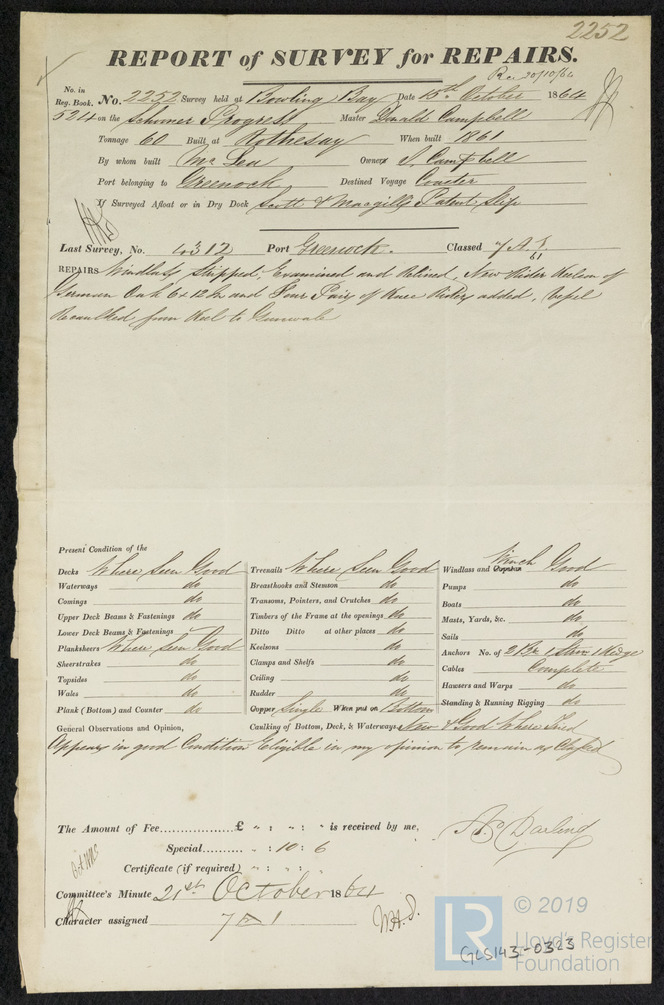 2252
REPORT of SURVEY for REPAIRS.
Rec. 20/10/64
No. in
Reg. Book.
No. 2252 Survey held at Bowling Bay Date 15th October 1864
524 on the Schooner Progress Master Donald Campbell
Tonnage 60 Built at Rothesay When built 1861
By whom built McLea Owners Campbell
Port belonging to Greenock Destined Voyage Coaster
If Surveyed Afloat or in Dry Dock Scott & Macgills Patent Slip
Last Survey, No. 4312 Port Greenock. Classed 7 A 1. 61
REPAIRS Windlass Stripped, Examined and Relined, New Rider Keelson of
German Oak 6 x 12 In and Four Pairs of Knee Riders added, Vessel
Recaulked from Keel to Gunwale
Present Condition of the
Decks Where Seen Good
Waterways do
Comings do
Upper Deck Beams & Fastenings do
Lower Deck Beams & Fastenings
Planksheers Where Seen Good
Sheerstrakes do
Topsides do
Wales do
Plank (Bottom) and Counter do
Treenails Where Seen Good
Breasthooks and Stemson do
Transoms, Pointers, and Crutches do
Timbers of the Frame at the openings do
Ditto Ditto at other places do
Keelsons do
Clamps and Shelfs do
Ceiling do
Rudder do
Copper Single When put on Bottom
Caulking of Bottom, Deck, & Waterways New & Good Where Tried
Windlass and Capstan Winch Good
Pumps do
Boats do
Masts, Yards, &c. do
Sails do
Anchors No. of 2 Br 1 Strm 1 Kedge
Cables Complete
Hawsers and Warps do
Standing & Running Rigging do
General Observations and Opinion,
Appears in good Condition Eligible in my opinion to remain as Classed
The Amount of Fee............... £ " : " : " is received by me,
Special.......... " : 10 : 6
Certificate (if required) " : " :
Darling
Committee's Minute 21st October 1864
Character assigned 7 A 1
LR
© 2019
Lloyd's Register
Foundation
GLS143-0323